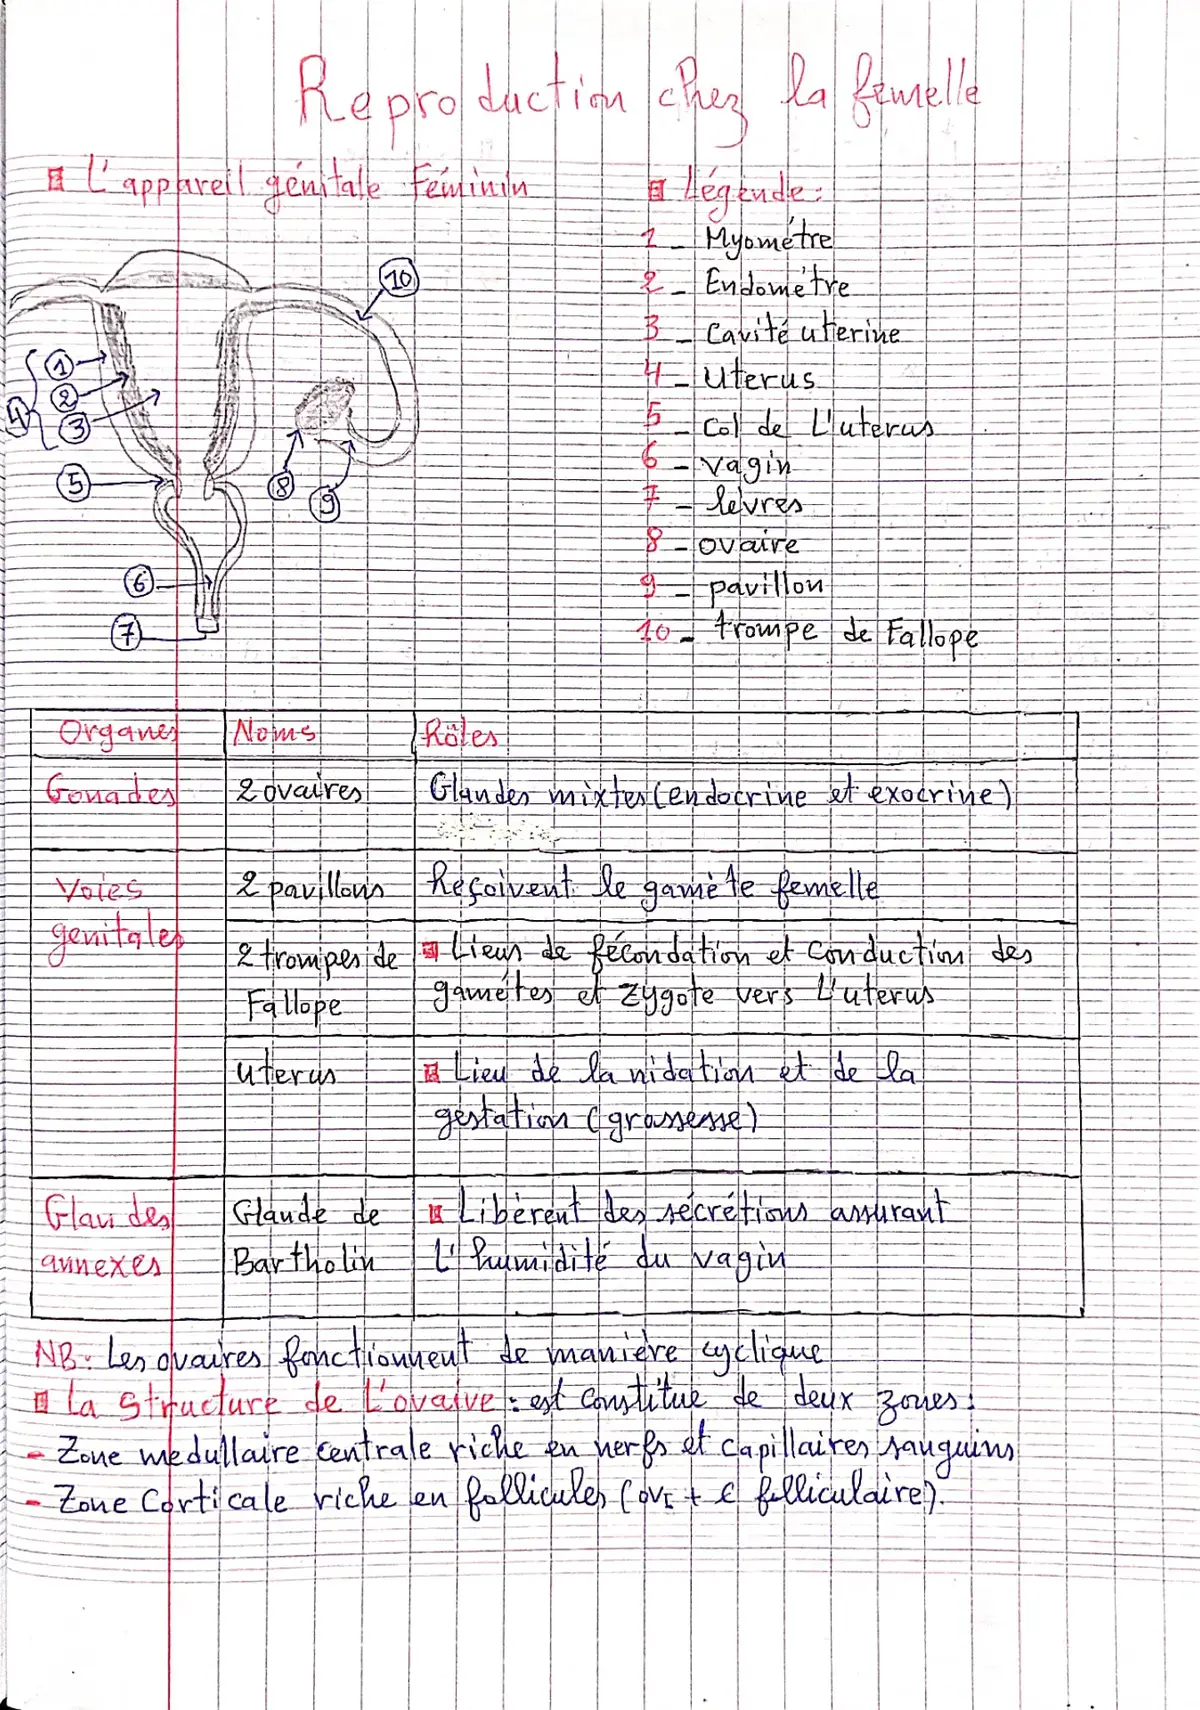 Reproduction chez la femelle
L'appareil génitale Féminin
Légende:
1 - Myométre
2 - Endométre
3 - Cavité uterine
4 - Uterus
5 - Col de L'uterus
6 - vagin
7 - lèvres
8 - ovaire
9 - pavillon
10 - trompe de Fallope
10
1
2
3
4
5
8
9
6
7
Organes Noms Rôles
Gonades 2 ovaires Glandes mixtes (endocrine et exocrine)
Voies 2 pavillons Reçoivent le gamète femelle
genitales
2 trompes de Lieus de fécondation et conduction des
Fallope gamétes et zygote vers L'uterus
uterus Lieu de la nidation et de la
gestation (grossesse)
Glandes Glande de Libèrent des sécrétions assurant
annexes Bartholin L'humidité du vagin
NB: Les ovaires fonctionnent de manière cyclique
La structure de L'ovaire : est constitue de deux zones:
- Zone medullaire centrale riche en nerfs et capillaires sanguins
- Zone Corticale riche en follicules (OVI + € folliculaire).